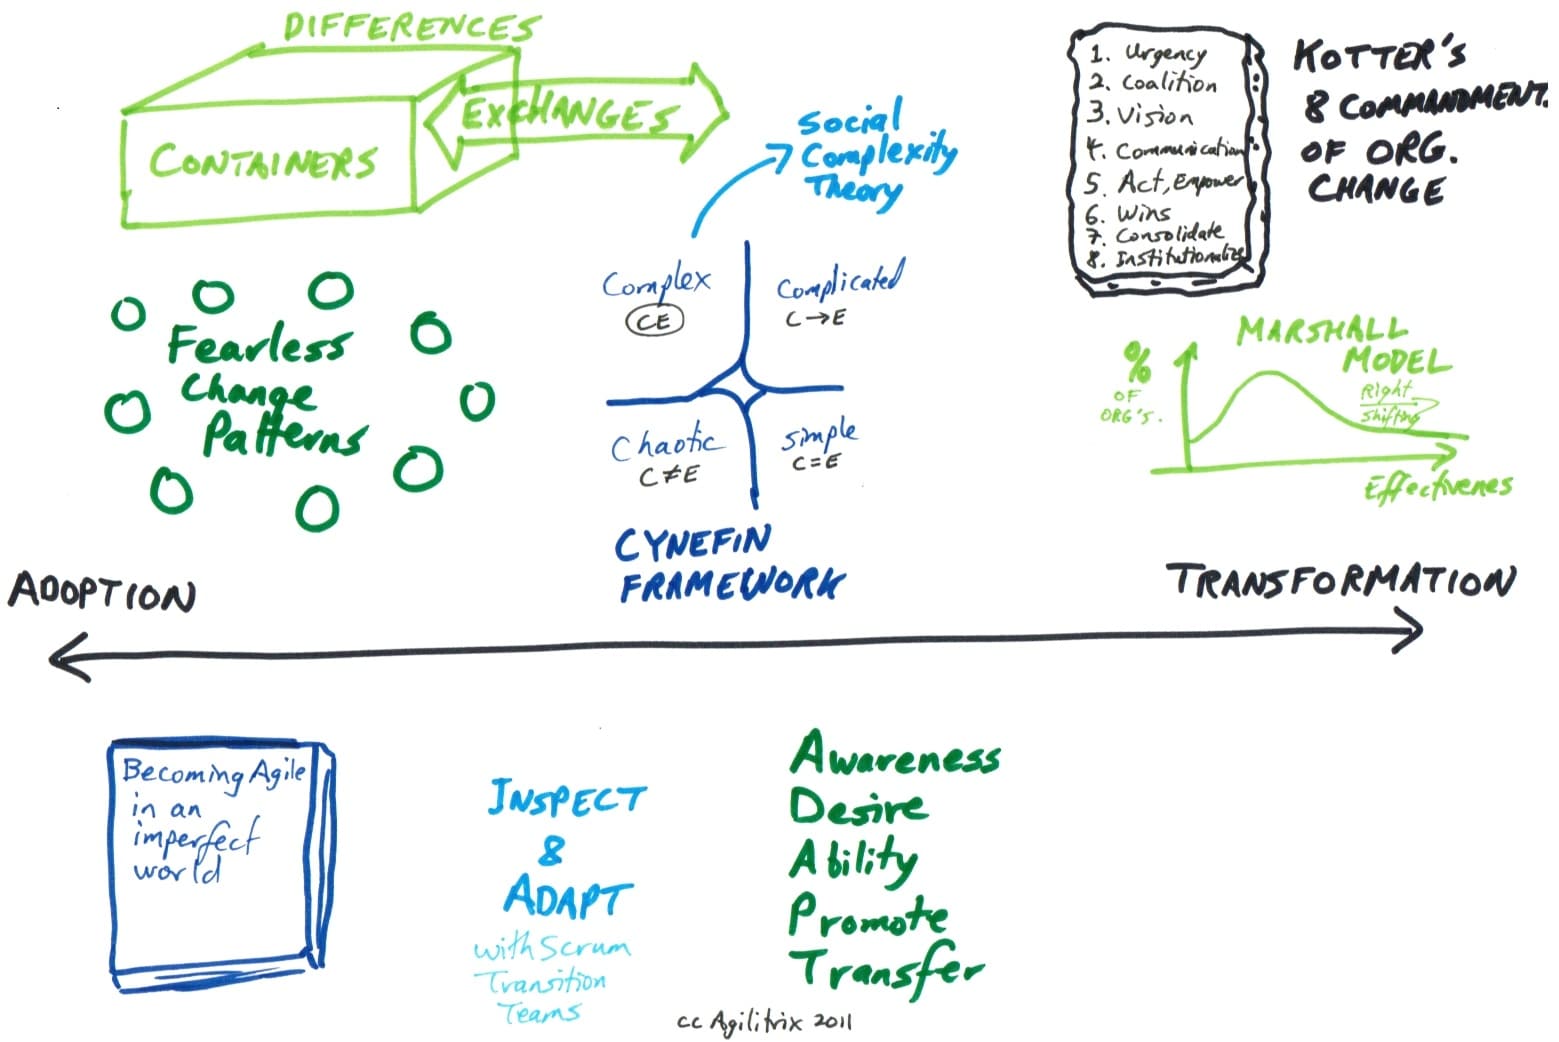 DIFFERENCES
CONTAINERS
EXCHANGES
Social
Complexity
Theory
1. Urgency
2. Coalition
3. Vision
4. Communication
5. Act, Empower
6. Wins
7. Consolidate
8. Institutionalize
KOTTER'S
8 COMMANDMENT
OF ORG.
CHANGE
Fearless
Change
Patterns
Complex
CE
Complicated
C→E
Chaotic
C≠E
Simple
C=E
CYNEFIN
FRAMEWORK
MARSHALL
MODEL
%
OF
ORG'S.
Right
Shifting
Effectivenes
ADOPTION
TRANSFORMATION
Becoming Agile
in an
imperfect
world
INSPECT
&
ADAPT
with Scrum
Transition
Teams
Awareness
Desire
Ability
Promote
Transfer
cc Agilitrix 2011